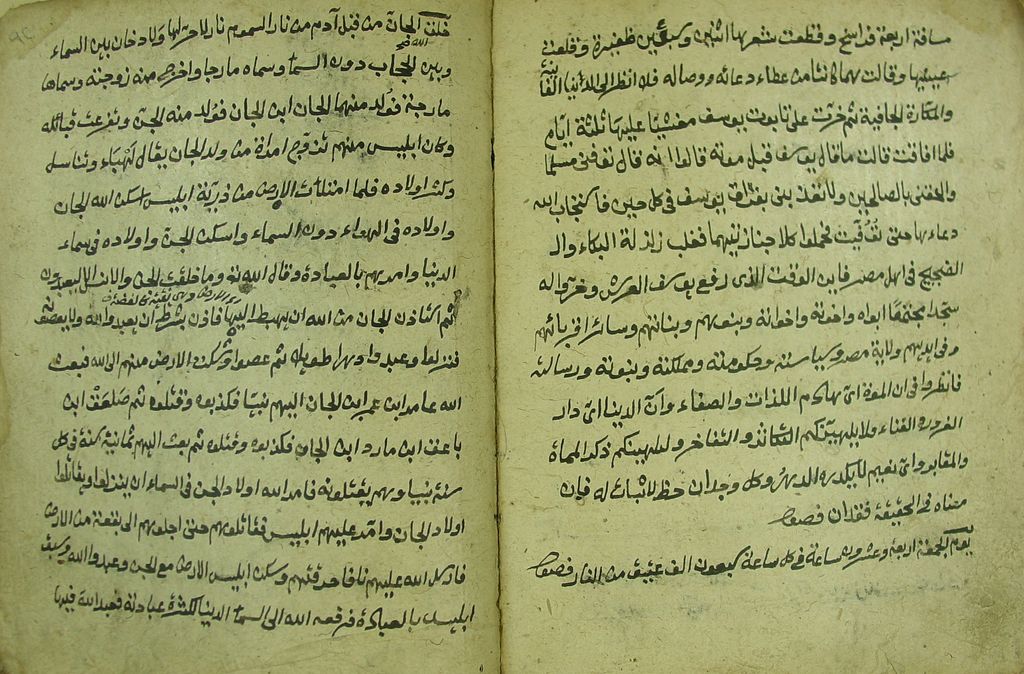 مسافة اربعة فراسخ وقطعت شعرها اثنين وسبعين ظفيرة وقلعت
عينيها وقالت بهما كانتا من عطاء دعائه ووصاله فلا انظر الى الدنيا الفانية
والمكارة الجافية ثم خرّت على تابوت يوسف مغشيّا عليها ثلثة ايّام
فلما افاقت قالت ما قال يوسف قبل موته قالوا انه قال توفني مسلما
والحقني بالصالحين ولا تعذبني بفراق يوسف في كل حين فاستجاب الله
دعاءها حتى توفيت فحملوا كلا جنازتيهما فغلب زلزلة البكاء وال
الضجيج في اهل مصر فاين الوقت الذي رفع يوسف العرش وخرّوا له
سجّدا مجتمعا ابواه واخوته واخواته وبنوهم وبناتهم وسائر اقربائهم
وفي ايديهم ولاية مصر وسياسته وحكومته ومملكته ونبوته ورسالته
فانظروا في ان الموت اي هادم اللذات والصفاء وانّ الدنيا اي دار
الغرور والفناء ولا يلهينّكم التكاثر والتفاخر وليلهينكم ذكر المماة
والمقابر واي نعيم لا يكدره الدهر وكل وجدان حظ لا ثبات له فان
معناه في الحقيقة فقدان
يوم الجمعة اربعة وعشرون ساعة في كل ساعة سبعون الف عتيق من النار
خلق الجان من قبل آدم من نار السموم نار لا حر لها ولا دخان بين السماء
وبين الحجاب دون السماء وسماه مارجا واخرج منه زوجته وسماها
مارجة فولد منهما الجان ابن الجان فولد منه الجن وتفرعت قبائله
وكان ابليس منهم تزوج امراة من ولد الجان يقال لهباء وتناسل
وكثر اولاده فلما امتلات الارض من ذرية ابليس اسكن الله الجان
واولاده في الهواء دون السماء واسكن الجن واولاده في سماء
الدنيا وامرهم بالعبادة وقال الله تع وما خلقت الجن والانس الا ليعبدون
ثم استاذن الجان من الله ان يهبط اليها فاذن بشرط ان يعبدوا الله ولا يعصوه
فنزلوا وعبدوا دهرا طويلا ثم عصوا وشكت الارض منهم الى الله فبعث
الله عامر ابن عمير ابن الجان اليهم نبيّا فكذبوه وقتلوه ثم صاعق ابن
باعق ابن مارد ابن الجان فكذبوه وقتلوه ثم بعث اليهم ثمانية سنة في كل
سنة نبيّا وهم يقتلونه فامر الله اولاد الجن في السماء ان ينزلوا ويقاتلوا
اولاد الجان وامّر عليهم ابليس فقاتلوهم حتى اجلوهم الى بقعة من الارض
فارسل الله عليهم نارا فاحرقتهم وسكن ابليس الارض مع الجن وعبدوا الله وسبق
ابليس بالعبادة فرفعه الله الى السماء الدنيا لكثرة عبادته فعبد الله فيها